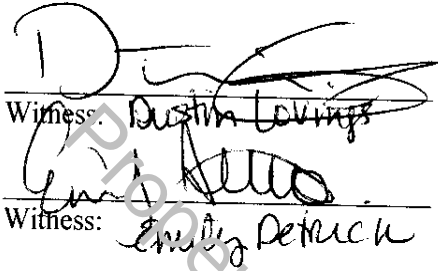 Witness: Dustin Lovings
Witness:
Emily Detrich
Prope